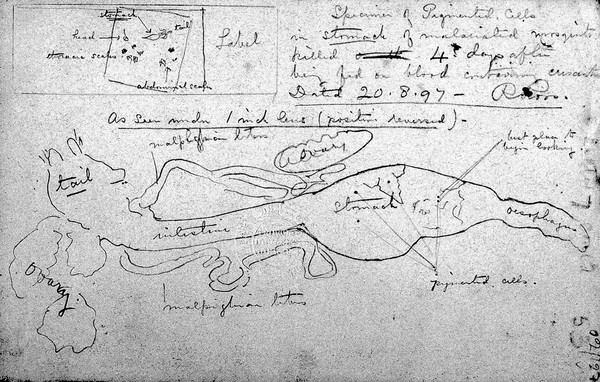 stomach
tail
head
thoracic scales
abdominal scales
Label
Specimen of Pigmented Cells
in stomach of malariated mosquito
killed 4 days after
being fed on blood containing crescents
Dated 20.8.97 - R. Ross.
As seen under 1 inch lens (position reversed) -
malpighian tubes
ovary
best place to
begin looking.
tail
stomach
oesophagus
intestine
ovary
malpighian tubes
pigmented cells.